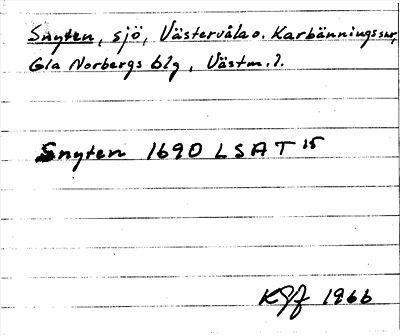 Snyten, sjö, Västervåla o. Karbänningssnr,
Gla Norbergs blg, Västm. l.
Snyten 1690 LSA T 15
1966